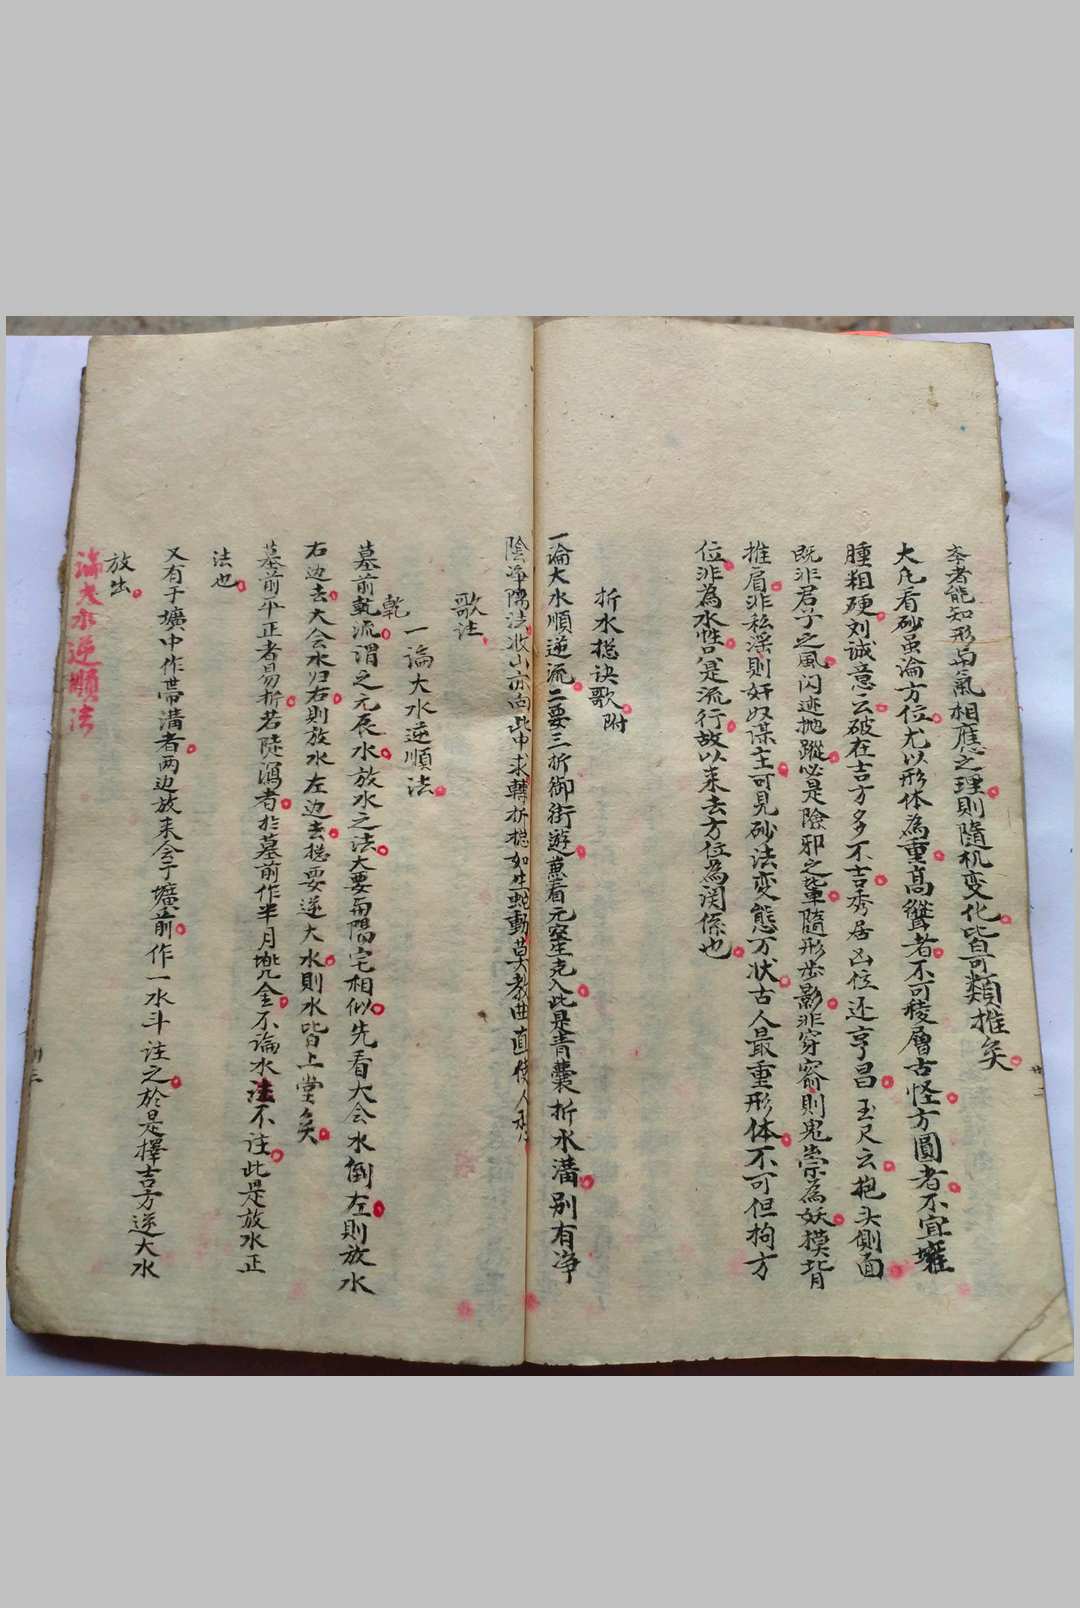 者能知形与氣相應之理則隨机变化皆可類推矣
大凡看砂虽論方位尤以形体為重高聳者不可稜層古怪方圓者不宜壅
腫粗硬刘诚意云破在吉方多不吉秀居凶位还亨昌玉尺云抱头側面
既非君子之風闪迹抛蹤必是險邪之輩隨形步影非穿窬則鬼祟為妖摸背
推肩非私淫則奸奴谋主可見砂法变態万状古人最重形体不可但拘方
位非為水性只是流行故以来去方位為関係也
折水総诀歌附
一論大水順逆流二要三折御街遊意看元空生克入此是青囊折水溝别有净
陰净陽法收山亦向此中求轉折総如生蛇動莫教曲直使人
歌注
一論大水逆順法
乾
墓前乾流谓之元辰水放水之法大要与陽宅相似先看大会水倒左則放水
右边去大会水归右則放水左边去総要逆大水則水皆上堂矣
墓前平正者易折若陡瀉者於墓前作半月金不論水法不注此是放水正
法也
又有于壙中作帶溝者两边放来会于壙前作一水斗注之於是擇吉方逆大水
放出
論大水逆順法